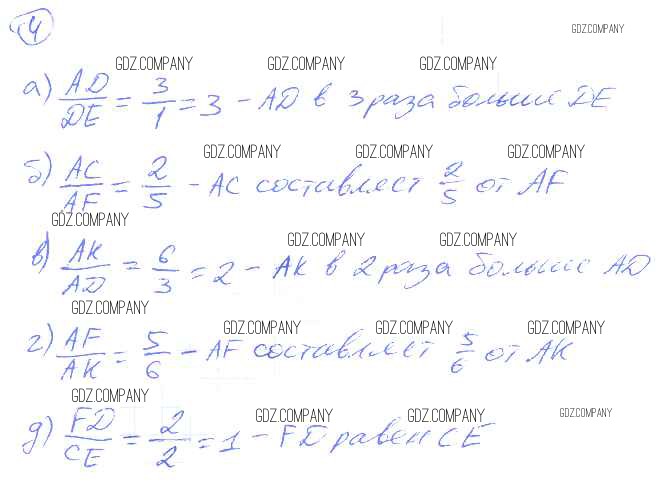 4
GDZ.COMPANY
GDZ.COMPANY GDZ.COMPANY GDZ.COMPANY
а) AD/DE = 3/1 = 3 - AD в 3 раза больше DE
GDZ.COMPANY GDZ.COMPANY GDZ.COMPANY
б) AC/AF = 2/5 - AC составляет 2/5 от AF
GDZ.COMPANY
GDZ.COMPANY GDZ.COMPANY
в) AK/AD = 6/3 = 2 - AK в 2 раза больше AD
GDZ.COMPANY
GDZ.COMPANY GDZ.COMPANY GDZ.COMPANY
г) AF/AK = 5/6 - AF составляет 5/6 от AK
GDZ.COMPANY
GDZ.COMPANY GDZ.COMPANY GDZ.COMPANY
д) FD/CE = 2/2 = 1 - FD равен CE